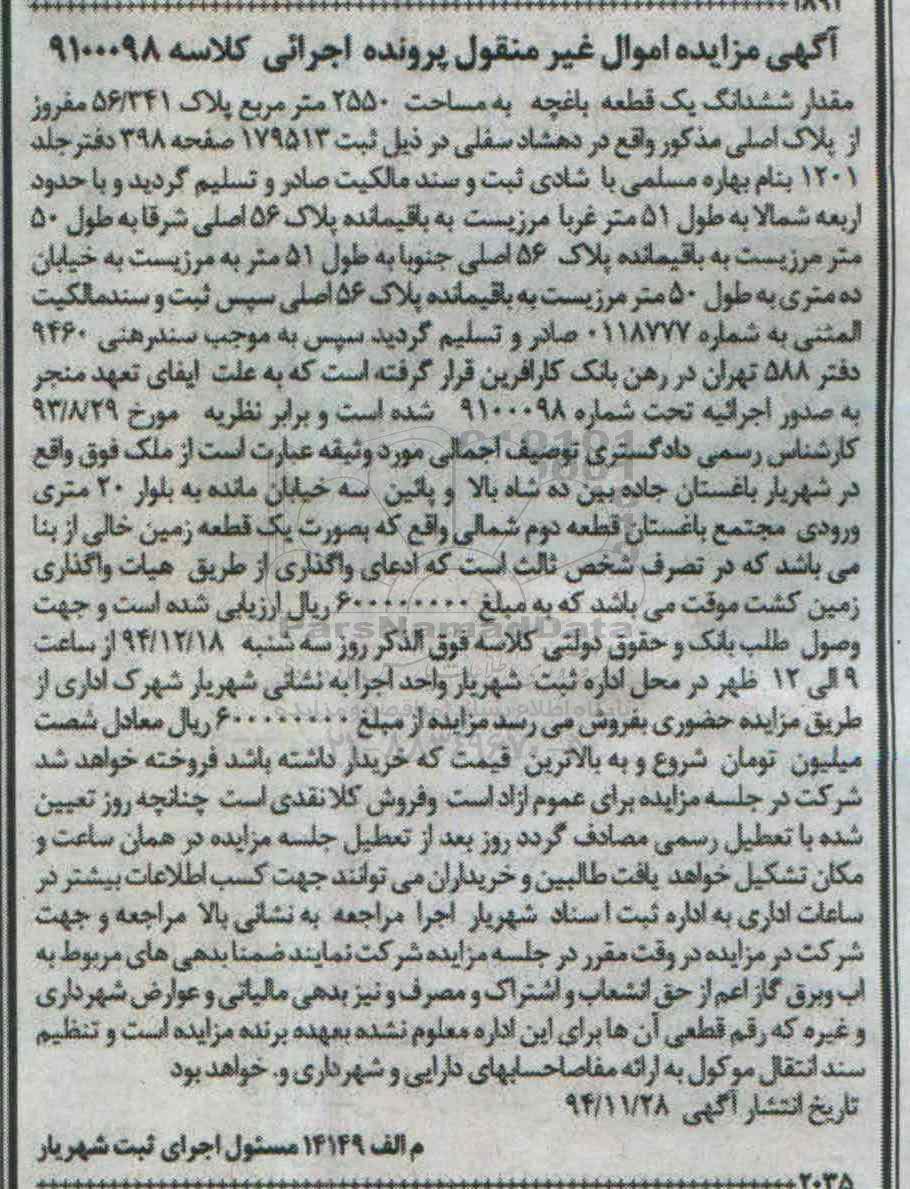 ۱۸۹۲
آگهی مزایده اموال غیر منقول پرونده اجرائی کلاسه ۹۱۰۰۰۹۸
مقدار ششدانگ یک قطعه باغچه به مساحت ۲۵۵۰ متر مربع پلاک ۵۶/۳۴۱ مفروز
از پلاک اصلی مذکور واقع در دهشاد سفلی در ذیل ثبت ۱۷۹۵۱۳ صفحه ۳۹۸ دفتر جلد
۱۲۰۱ بنام بهاره مسلمی با شادی ثبت و سند مالکیت صادر و تسلیم گردید و با حدود
اربعه شمالا به طول ۵۱ متر غربا مرزیست به باقیمانده پلاک ۵۶ اصلی شرقا به طول ۵۰
متر مرزیست به باقیمانده پلاک ۵۶ اصلی جنوبا به طول ۵۱ متر به مرزیست به خیابان
ده متری به طول ۵۰ متر مرزیست به باقیمانده پلاک ۵۶ اصلی سپس ثبت و سندمالکیت
المثنی به شماره ۰۱۱۸۷۷۷ صادر و تسلیم گردید. سپس به موجب سندرهنی ۹۴۶۰
دفتر ۵۸۸ تهران در رهن بانک کارافرین قرار گرفته است که به علت ایفای تعهد منجر
به صدور اجرائیه تحت شماره ۹۱۰۰۰۹۸ شده است و برابر نظریه مورخ ۹۳/۸/۲۹
کارشناس رسمی دادگستری توصیف اجمالی مورد وثیقه عبارت است از ملک فوق واقع
در شهریار باغستان جاده بین ده شاه بالا و پائین سه خیابان مانده به بلوار ۲۰ متری
ورودی مجتمع باغستان قطعه دوم شمالی واقع که بصورت یک قطعه زمین خالی از بنا
می باشد که در تصرف شخص ثالث است که ادعای واگذاری از طریق هیات واگذاری
زمین کشت موقت می باشد که به مبلغ ۶۰۰۰۰۰۰۰۰ ریال ارزیابی شده است و جهت
وصول طلب بانک و حقوق دولتی کلاسه فوق الذکر روز سه شنبه ۹۴/۱۲/۱۸ از ساعت
۹ الی ۱۲ ظهر در محل اداره ثبت شهریار واحد اجرا به نشانی شهریار شهرک اداری از
طریق مزایده حضوری بفروش می رسد مزایده از مبلغ ۶۰۰۰۰۰۰۰۰ ریال معادل شصت
میلیون تومان شروع و به بالاترین قیمت که خریدار داشته باشد فروخته خواهد شد
شرکت در جلسه مزایده برای عموم ازاد است وفروش کلا نقدی است چنانچه روز تعیین
شده با تعطیل رسمی مصادف گردد روز بعد از تعطیل جلسه مزایده در همان ساعت و
مکان تشکیل خواهد یافت طالبین و خریداران می توانند جهت کسب اطلاعات بیشتر در
ساعات اداری به اداره ثبت ا سناد شهریار اجرا مراجعه به نشانی بالا مراجعه و جهت
شرکت در مزایده در وقت مقرر در جلسه مزایده شرکت نمایند ضمنا بدهی های مربوط به
اب وبرق گاز اعم از حق انشعاب و اشتراک و مصرف و نیز بدهی مالیاتی و عوارض شهرداری
و غیره که رقم قطعی آن ها برای این اداره معلوم نشده بعهده برنده مزایده است و تنظیم
سند انتقال موکول به ارائه مفاصاحسابهای دارایی و شهرداری و. خواهد بود
تاریخ انتشار آگهی ۹۴/۱۱/۲۸
م الف ۱۴۱۴۹ مسئول اجرای ثبت شهریار
۲۰۳۵
ParsNamadData